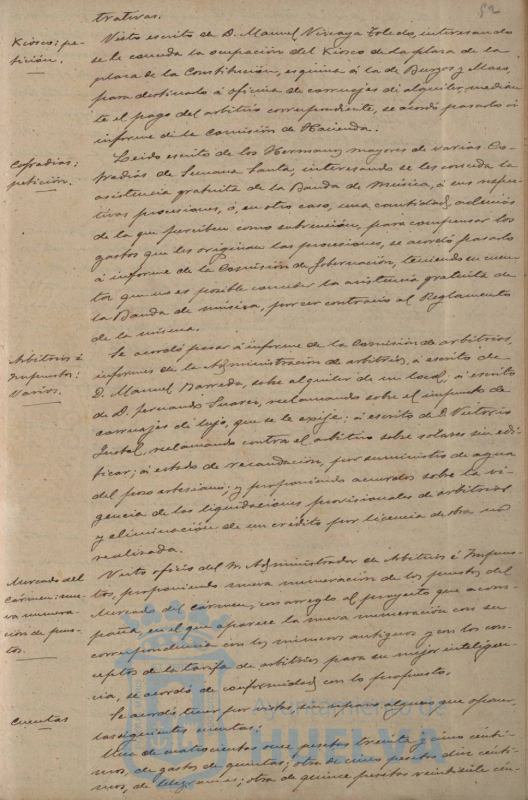 52
trativas.
Kiosco: petición.
Visto escrito de D. Manuel Vizcaya Toledo, interesando
se le conceda la ocupación del Kiosco de la plaza de la
plaza de la Constitución, esquina á la de Burgos y Mazo,
para destinarlo á oficina de carruajes de alquiler, median
te el pago del arbitrio correspondiente, se acordó pasarlo á
informe de la Comisión de Hacienda.
Cofradías:
petición.
Leido escrito de los Hermanos mayores de varias Co
fradías de Semana Santa, interesando se les conceda la
asistencia gratuita de la Banda de Música, á sus respec
tivas procesiones, ó, en otro caso, una cantidad, además
de la que perciben como subvención, para compensar los
gastos que les originan las procesiones, se acordó pasarlo
á informe de la Comisión de Gobernación, teniendo en cuen
ta que no es posible conceder la asistencia gratuita de
la Banda de música, por ser contrario al Reglamento
de la misma.
Arbitrios é
Impuestos:
Varios.
Se acordó pasar á informe de la Comisión de arbitrios,
informes de la Administración de arbitrios, á escrito de
D. Manuel Barreda, sobre alquiler de un local; á escrito
de D. Fernando Suarez, reclamando sobre el impuesto de
carruajes de lujo, que se le exige; á escrito de D. Victorio
reclamando contra el arbitrio sobre solares sin edi
ficar; á estado de recaudación, por suministro de agua
del pozo artesiano; y proponiendo acuerdos sobre la vi
gencia de las liquidaciones provisionales de arbitrios
y eliminación de un crédito por licencia de obra no
realizada.
Mercado del
Cármen: nue
va numera
ción de pues
tos.
Visto oficio del Sr. Administrador de Arbitrios é Impues
tos, proponiendo nueva numeración de los puestos del
Mercado del Cármen, con arreglo al proyecto que acom
paña, en el que aparece la nueva numeración con su
correspondencia con los números antiguos y con los con
ceptos de la tarifa de arbitrios para su mejor inteligen
cia, se acordó de conformidad con lo propuesto.
Cuentas
Se acordó tener por vistas sin reparo alguno que oponer
las siguientes cuentas:
Una de cuatrocientas once pesetas treinta y cinco cénti
mos, de gastos de quintas; otra de cinco pesetas diez cénti
mos, de telegramas; otra de quince pesetas veintisiete cén
Ayuntamiento de
HUELVA